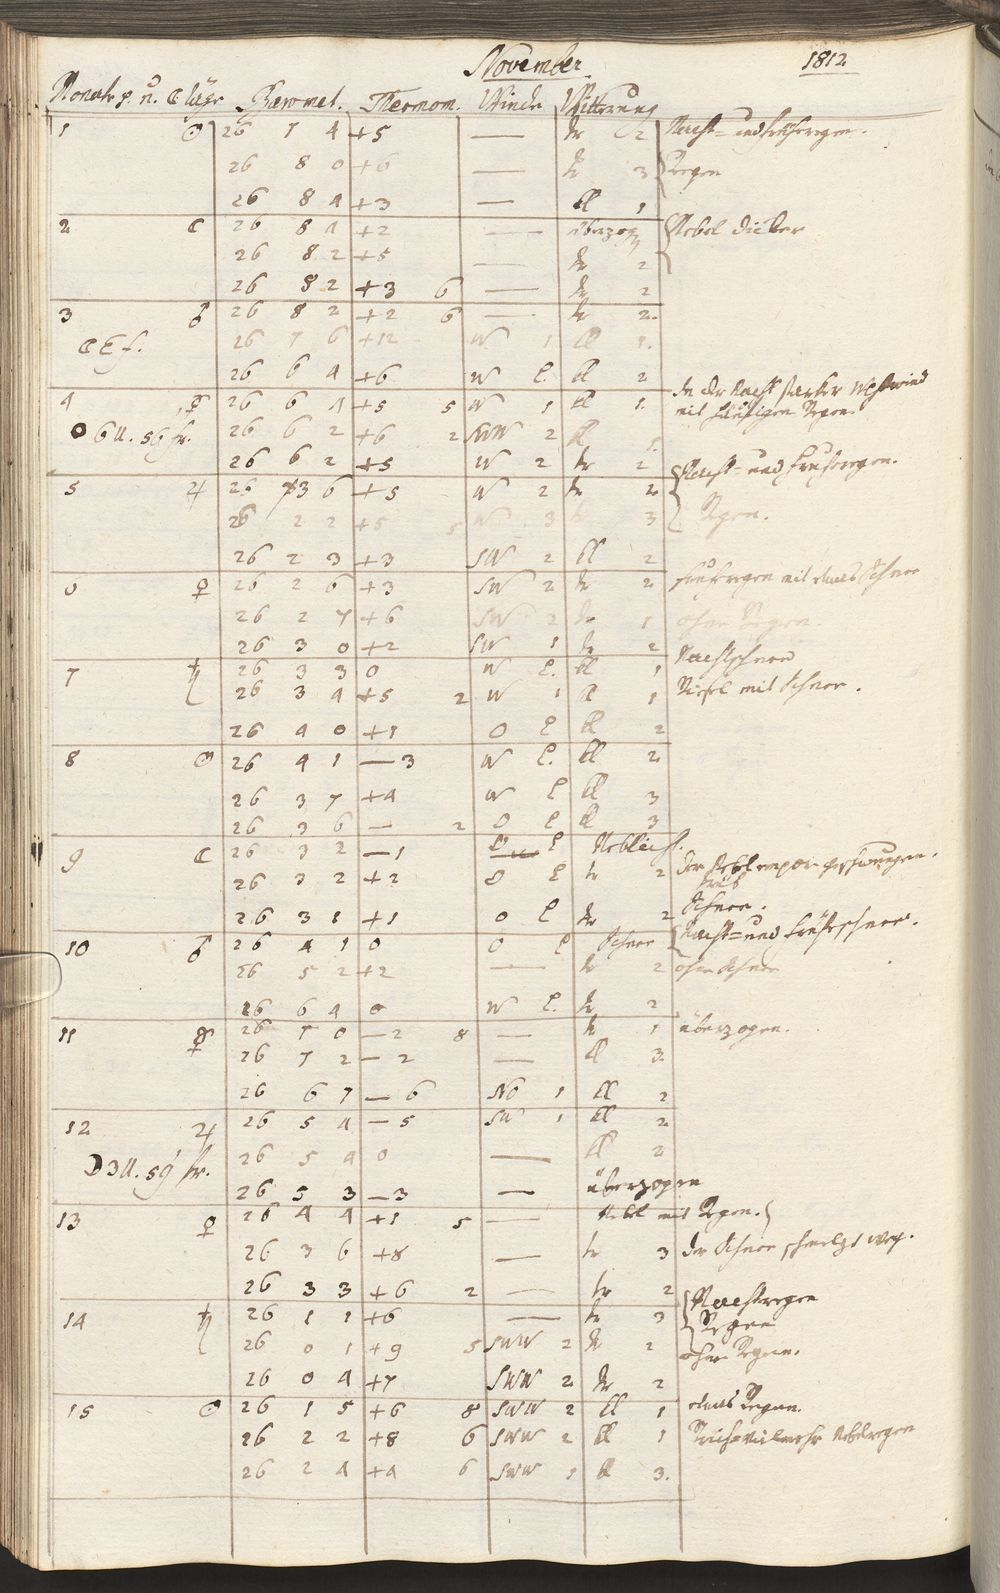 November 1812
Monats u. ☾ Täge Baromet. Thermom. Winde Witterung
1 ☉ 26 7 4 +5 — tr 2 Nacht= und Frühregen.
26 8 0 +6 — tr 3 Regen
26 8 4 +3 — kl 1
2 ☾ 26 8 4 +2 — überzog Nebel dicker
26 8 2 +5 — tr 2
26 8 2 +3 6 — tr 2
3 ♂ 26 8 2 +2 6 — tr 2.
☾ Ef. 26 7 6 +12 W 1 kl 1.
26 6 4 +6 W l. kl 2
In der Nacht starker Westwind
4 ☿ 26 6 4 +5 5 W 1 kl 1. mit häufigen Regen.
● 6 U. 56 fr. 26 6 2 +6 2 SWW 2 kl 1.
26 6 2 +5 W 2 tr 2 Nacht= und Frühregen.
5 ♃ 26 3 6 +5 W 2 tr 2 Regen.
26 2 2 +5 5 W 3 tr 3
26 2 3 +3 SW 2 kl 2
6 ♀ 26 2 6 +3 SW 2 tr 2 Frühregen mit etwas Schnee
26 2 7 +6 SW 2 tr 1 ohne Regen.
26 3 0 +2 SW 1 tr 2 Nachtschnee
7 ♄ 26 3 3 0 W l. kl 1
26 3 4 +5 2 W 1 kl 1 Riesel mit Schnee.
26 4 0 +1 O l kl 2
8 ☉ 26 4 1 —3 W l. kl 2
26 3 7 +4 W l kl 3
26 3 6 — 2 O l kl 3
9 ☾ 26 3 2 —1 O l Neblich.
26 3 2 +2 O l tr 2 Der Nebel empor geschwungen.
trüb
26 3 1 +1 O l tr 2 Schnee.
10 ♂ 26 4 1 0 O l Schnee Nacht= und Frühschnee.
26 5 2 +2 — tr 2 ohne Schnee
26 6 4 0 W l. tr 2
11 ☿ 26 7 0 —2 8 — tr 1 überzogen.
26 7 2 —2 — kl 3.
26 6 7 —6 NO 1 kl 2
12 ♃ 26 5 4 —5 SW 1 kl 2
☽ 3 U. 59 fr. 26 5 4 0 — kl 2
26 5 3 —3 — überzogen
13 ♀ 26 4 4 +1 5 — Nebel mit Regen.
26 3 6 +8 — tr 3 Der Schnee schmelzt weg.
26 3 3 +6 2 — tr 2
14 ♄ 26 1 1 +6 — tr 3 Nachtregen
Regen
26 0 1 +9 5 SWW 2 tr 2 ohne Regen.
26 0 4 +7 SWW 2 tr 2
15 ☉ 26 1 5 +6 8 SWW 2 kl 1 etwas Regen.
26 2 2 +8 6 SWW 2 kl 1 Nebelregen
26 2 4 +4 6 SWW 1 kl 3.